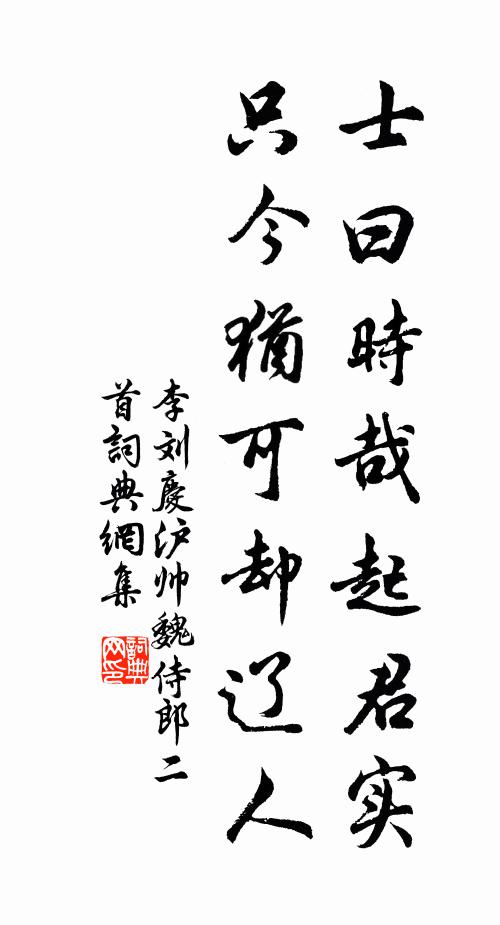 士曰時哉起君实
只今猶可却辽人
李刘慶沪帅魏侍郎二
首詞典網集
詞典
网印